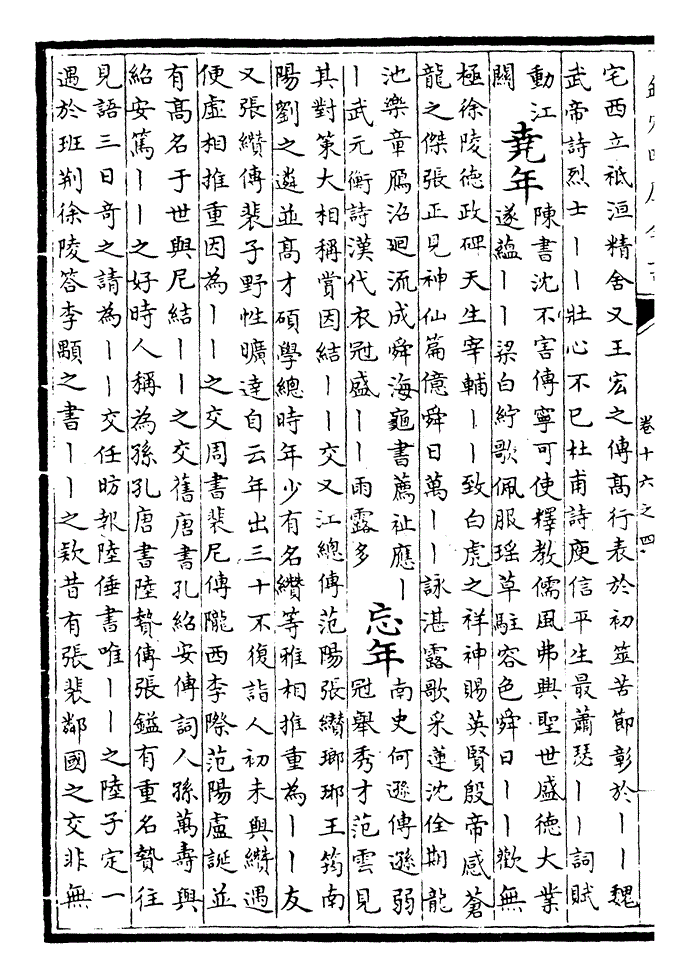 卷十六之四
宅西立祇洹精舍又王宏之傳髙行表於初筮苦節彰於丨丨魏
武帝詩烈士丨丨壯心不已杜甫詩庾信平生最蕭瑟丨丨詞賦
動江
關
堯年
陳書沈不害傳寧可使釋教儒風弗興聖世盛德大業
遂蘊丨丨梁白紵歌佩服瑶草駐容色舜日丨丨歡無
極徐陵德政碑天生宰輔丨丨致白虎之祥神賜英賢殷帝感蒼
龍之傑張正見神仙篇億舜日萬丨丨詠湛露歌采蓮沈佺期龍
池樂章鴈沼廻流成舜海龜書薦祉應丨
丨武元衡詩漢代衣冠盛丨丨雨露多
忘年
南史何遜傳遜弱
冠舉秀才范雲見
其對策大相稱賞因結丨丨交又江總傳范陽張纘瑯琊王筠南
陽劉之遴並髙才碩學總時年少有名纘等雅相推重為丨丨友
又張纘傳裴子野性曠達自云年出三十不復詣人初未與纘遇
便虛相推重因為丨丨之交周書裴尼傳隴西李際范陽盧誕並
有髙名于世與尼結丨丨之交舊唐書孔紹安傳詞人孫萬壽與
紹安篤丨丨之好時人稱為孫孔唐書陸贄傳張鎰有重名贄往
見語三日竒之請為丨丨交任昉報陸倕書唯丨丨之陸子定一
遇於班荆徐陵答李顒之書丨丨之欵昔有張裴鄰國之交非無